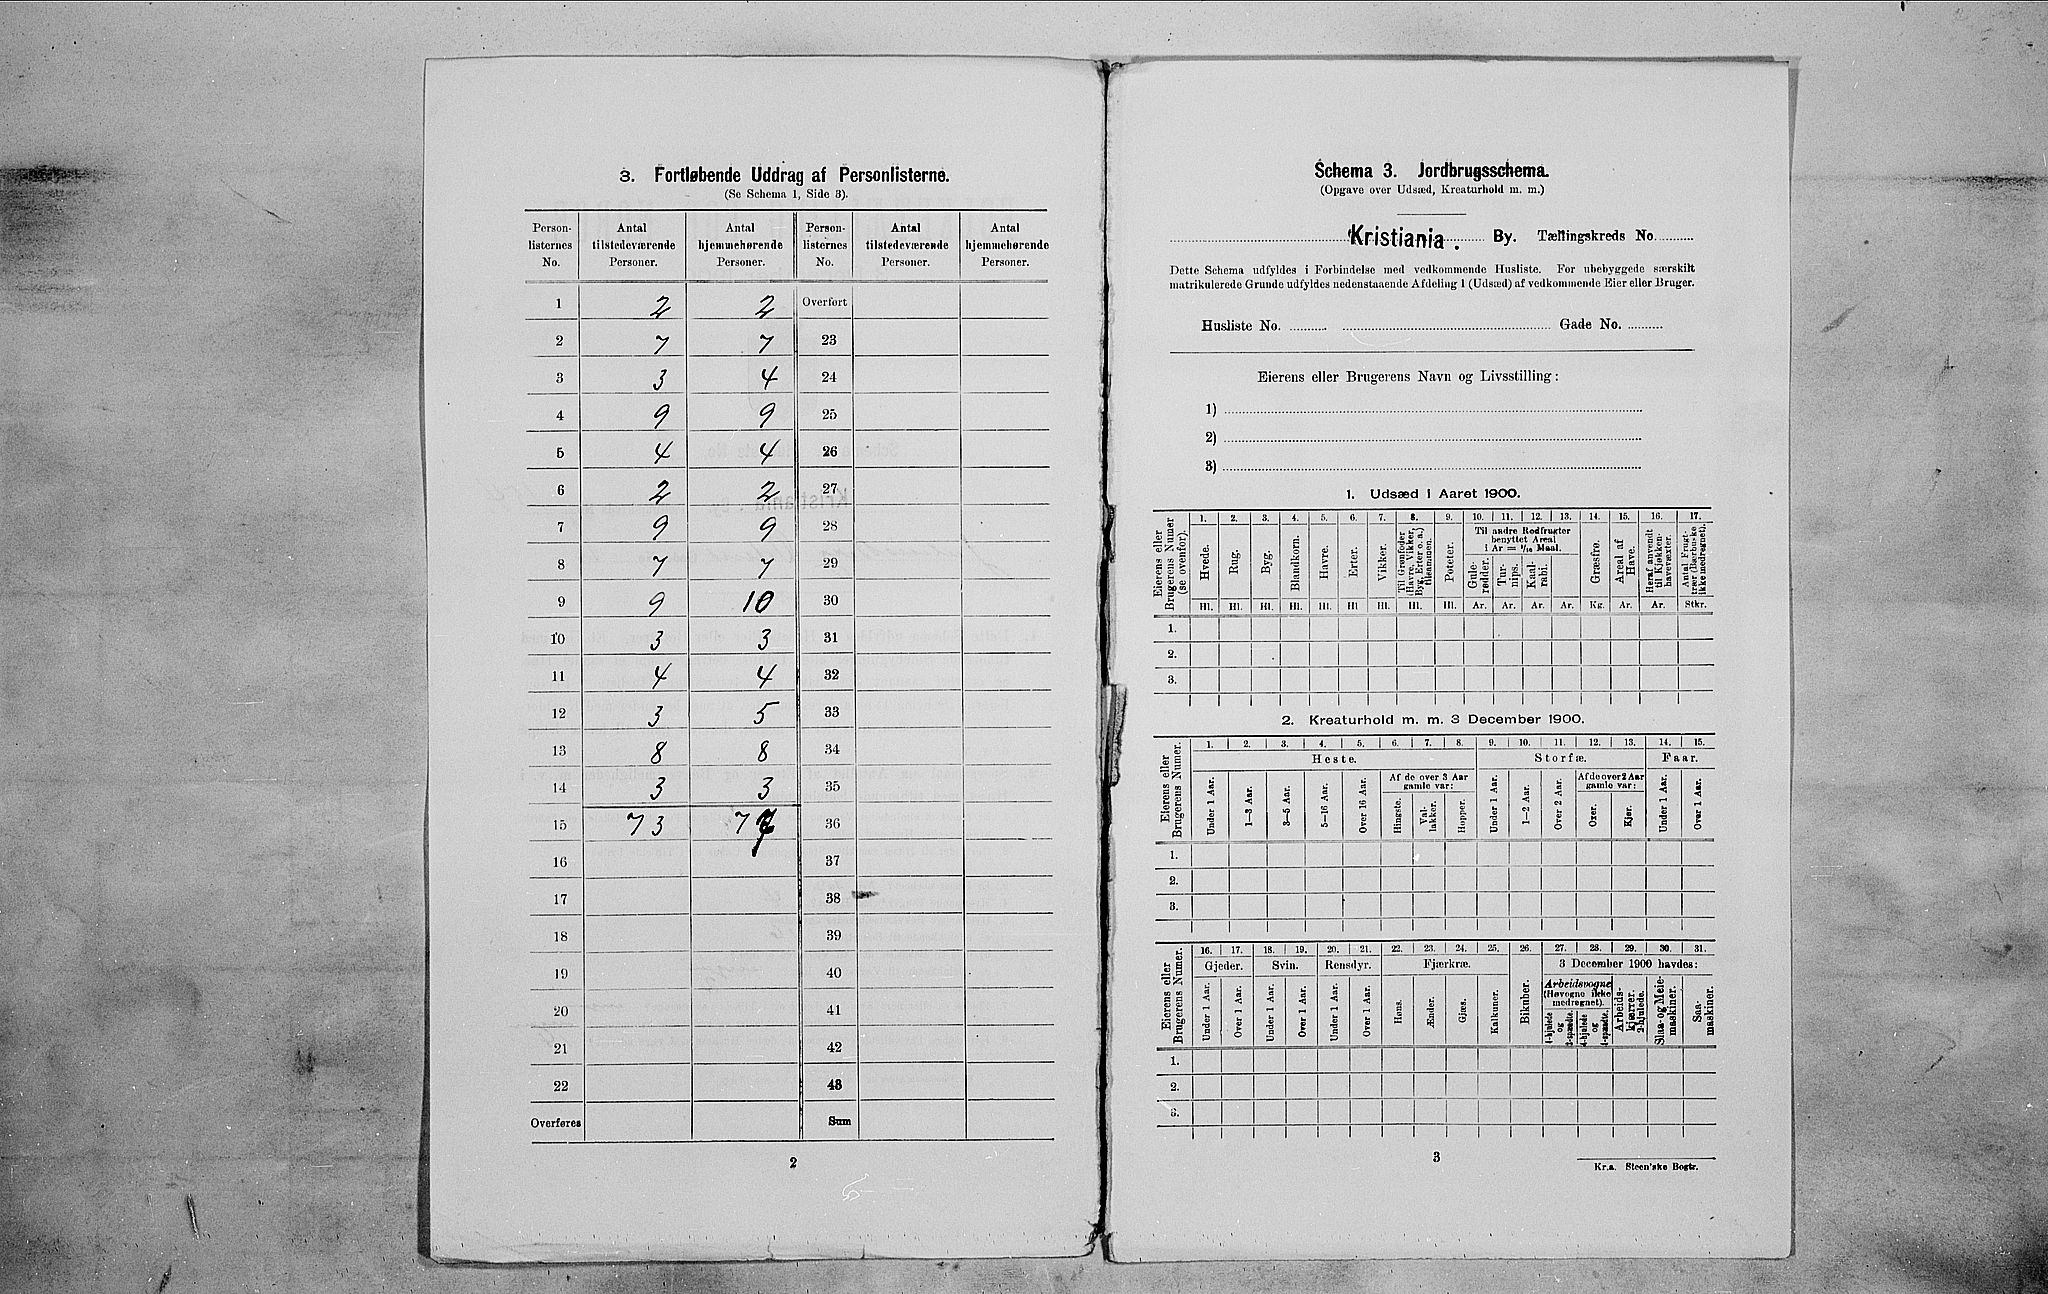 3. Fortløbende Uddrag af Personlisterne.
(Se Schema 1, Side 3).
Person-listernes No. | Antal tilstedeværende Personer. | Antal hjemmehørende Personer. | Person-listernes No. | Antal tilstedeværende Personer. | Antal hjemmehørende Personer.
1 2 2 Overført
2 7 7 23
3 3 4 24
4 9 9 25
5 4 4 26
6 2 2 27
7 9 9 28
8 7 7 29
9 9 10 30
10 3 3 31
11 4 4 32
12 3 5 33
13 8 8 34
14 3 3 35
15 73 77 36
16 37
17 38
18 39
19 40
20 41
21 42
22 43
Overføres Sum
2
Schema 3. Jordbrugsschema.
(Opgave over Udsæd, Kreaturhold m. m.)
Kristiania. By. Tællingskreds No.
Dette Schema udfyldes i Forbindelse med vedkommende Husliste. For ubebyggede særskilt
matrikulerede Grunde udfyldes nedenstaaende Afdeling 1 (Udsæd) af vedkommende Eier eller Bruger.
Husliste No. Gade No.
Eierens eller Brugerens Navn og Livsstilling:
1)
2)
3)
1. Udsæd i Aaret 1900.
Eierens eller Brugerens Numer (se ovenfor).
1. 2. 3. 4. 5. 6. 7. 8. 9. 10. 11. 12. 13. 14. 15. 16. 17.
Til andre Rodfrugter benyttet Areal i Ar = 1/10 Maal.
Hvede. Rug. Byg. Blandkorn. Havre. Erter. Vikker. Til Grønfoder (Havre, Vikker, Byg, Erter o. a.) tilsammen. Poteter. Gule-rødder. Tur-nips. Kaal-rabi. Græsfrø. Areal af Have. Heraf anvendt til Kjøkken-havevæxter. Antal Frugt-trær (Bærbuske ikke medregnet).
Hl. Hl. Hl. Hl. Hl. Hl. Hl. Hl. Hl. Ar. Ar. Ar. Ar. Kg. Ar. Ar. Stkr.
1.
2.
3.
2. Kreaturhold m. m. 3 December 1900.
Eierens eller Brugerens Numer.
1. 2. 3. 4. 5. 6. 7. 8. 9. 10. 11. 12. 13. 14. 15.
Heste. Storfæ. Faar.
Af de over 3 Aar gamle var: Af de over 2 Aar gamle var:
Under 1 Aar. 1—3 Aar. 3—5 Aar. 5—16 Aar. Over 16 Aar. Hingste. Val-lakker. Hopper. Under 1 Aar. 1—2 Aar. Over 2 Aar. Oxer. Kjør. Under 1 Aar. Over 1 Aar.
1.
2.
3.
Eierens eller Brugerens Numer.
16. 17. 18. 19. 20. 21. 22. 23. 24. 25. 26. 27. 28. 29. 30. 31.
Gjeder. Svin. Rensdyr. Fjærkræ. 3 December 1900 havdes:
Arbeidsvogne (Høvogne ikke medregnet).
Under 1 Aar. Over 1 Aar. Under 1 Aar. Over 1 Aar. Under 1 Aar. Over 1 Aar. Høns. Ænder. Gjæs. Kalkuner. Bikuber. 4-hjulede og 2-spændte. 4-hjulede og 1-spændte. Arbeids-kjærrer. 2-hjulede. Slaa- og Meie-maskiner. Saa-maskiner.
1.
2.
3.
3
Kr.a. Steen'ske Bogtr.